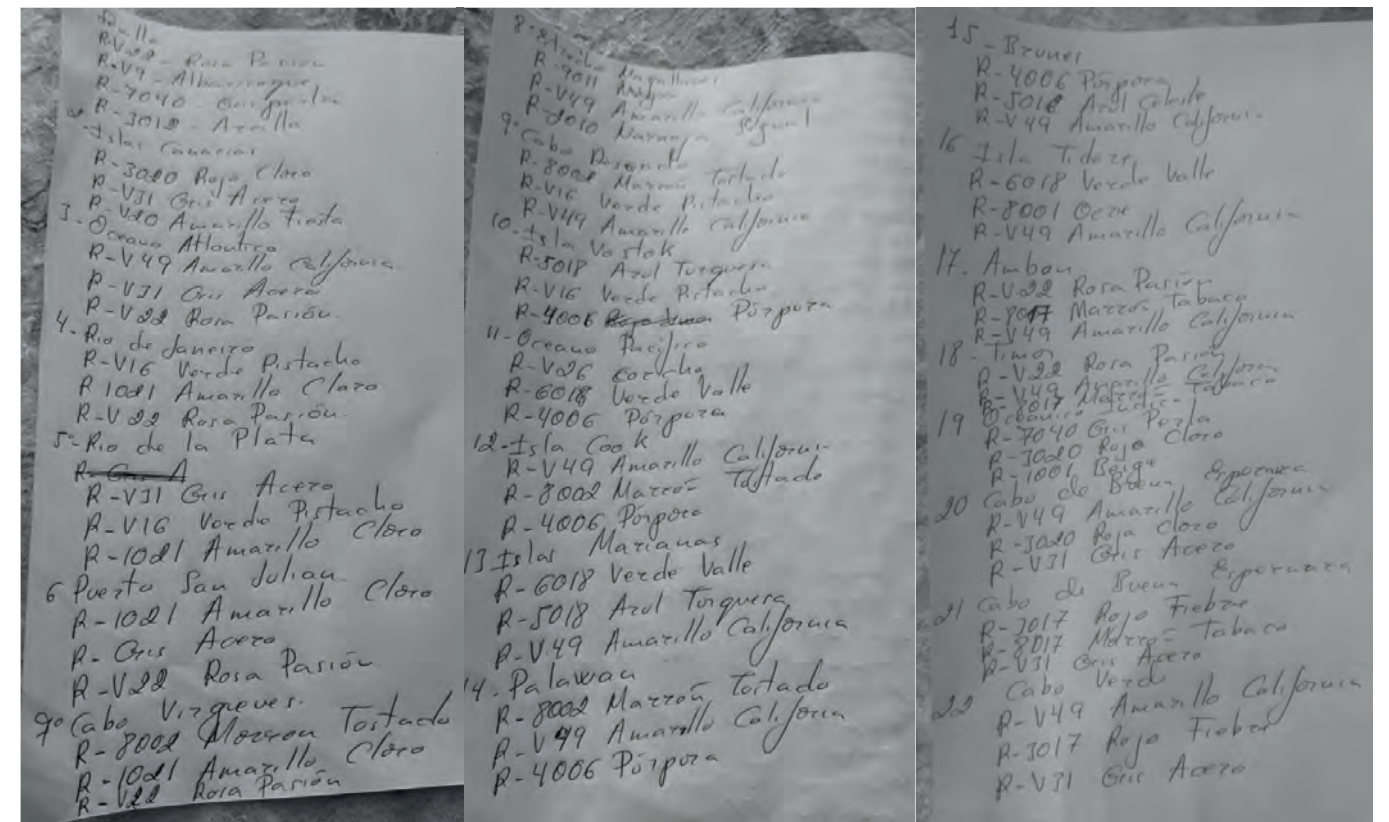 R-V22 - Rosa Pasion
R-V9 - Albaricoque
R-7040 - Gris perla
R-3012 - Arcilla
2- Islas Canarias
R-3020 Rojo Claro
R-V31 Gris Acero
R-V20 Amarillo Fiesta
3- Oceano Atlantico
R-V49 Amarillo California
R-V31 Gris Acero
R-V22 Rosa Pasión
4- Rio de Janeiro
R-V16 Verde Pistacho
R 1021 Amarillo Claro
R-V22 Rosa Pasión
5- Rio de la Plata
R-Gris A
R-V31 Gris Acero
R-V16 Verde Pistacho
R-1021 Amarillo Claro
6 Puerto San Julian
R-1021 Amarillo Claro
R- Gris Acero
R-V22 Rosa Pasión
7º Cabo Virgenes.
R-8002 Marron Tostado
R-1021 Amarillo Claro
R-V22 Rosa Pasión
8- Magallanes
R-4011
R-V49 Amarillo California
R-2010 Naranja Signal
9- Cabo Deseado
R-8002 Marron Tostado
R-V16 Verde Pistacho
R-V49 Amarillo California
10- Isla Vostok
R-5018 Azul Turquesa
R-V16 Verde Pistacho
R-4006 Púrpura
11- Oceano Pacifico
R-V26 corcho
R-6018 Verde Valle
R-4006 Púrpura
12- Isla Cook
R-V49 Amarillo California
R-8002 Marrón Tostado
R-4006 Púrpora
13 Islas Marianas
R-6018 Verde Valle
R-5018 Azul Turquesa
R-V49 Amarillo California
14- Palawan
R-8002 Marrón Tostado
R-V49 Amarillo California
R-4006 Púrpura
15- Brunei
R-4006 Púrpora
R-5012 Azul Celeste
R-V49 Amarillo California
16 Isla Tidore
R-6018 Verde Valle
R-8001 Ocre
R-V49 Amarillo California
17. Ambon
R-V22 Rosa Pasión
R-8017 Marrón Tabaco
R-V49 Amarillo California
18- Timor
R-V22 Rosa Pasión
R-V49 Amarillo California
R-8017 Marrón Tabaco
19 Oceanico Indic
R-7040 Gris Perla
R-3020 Rojo Claro
R-1001 Beige
20 Cabo de Buena Esperanza
R-V49 Amarillo California
R-3020 Rojo Claro
R-V31 Gris Acero
21 Cabo de Buena Esperanza
R-3017 Rojo Fiebre
R-8017 Marrón Tabaco
R-V31 Gris Acero
22 Cabo Verde
R-V49 Amarillo California
R-3017 Rojo Fiebre
R-V31 Gris Acero